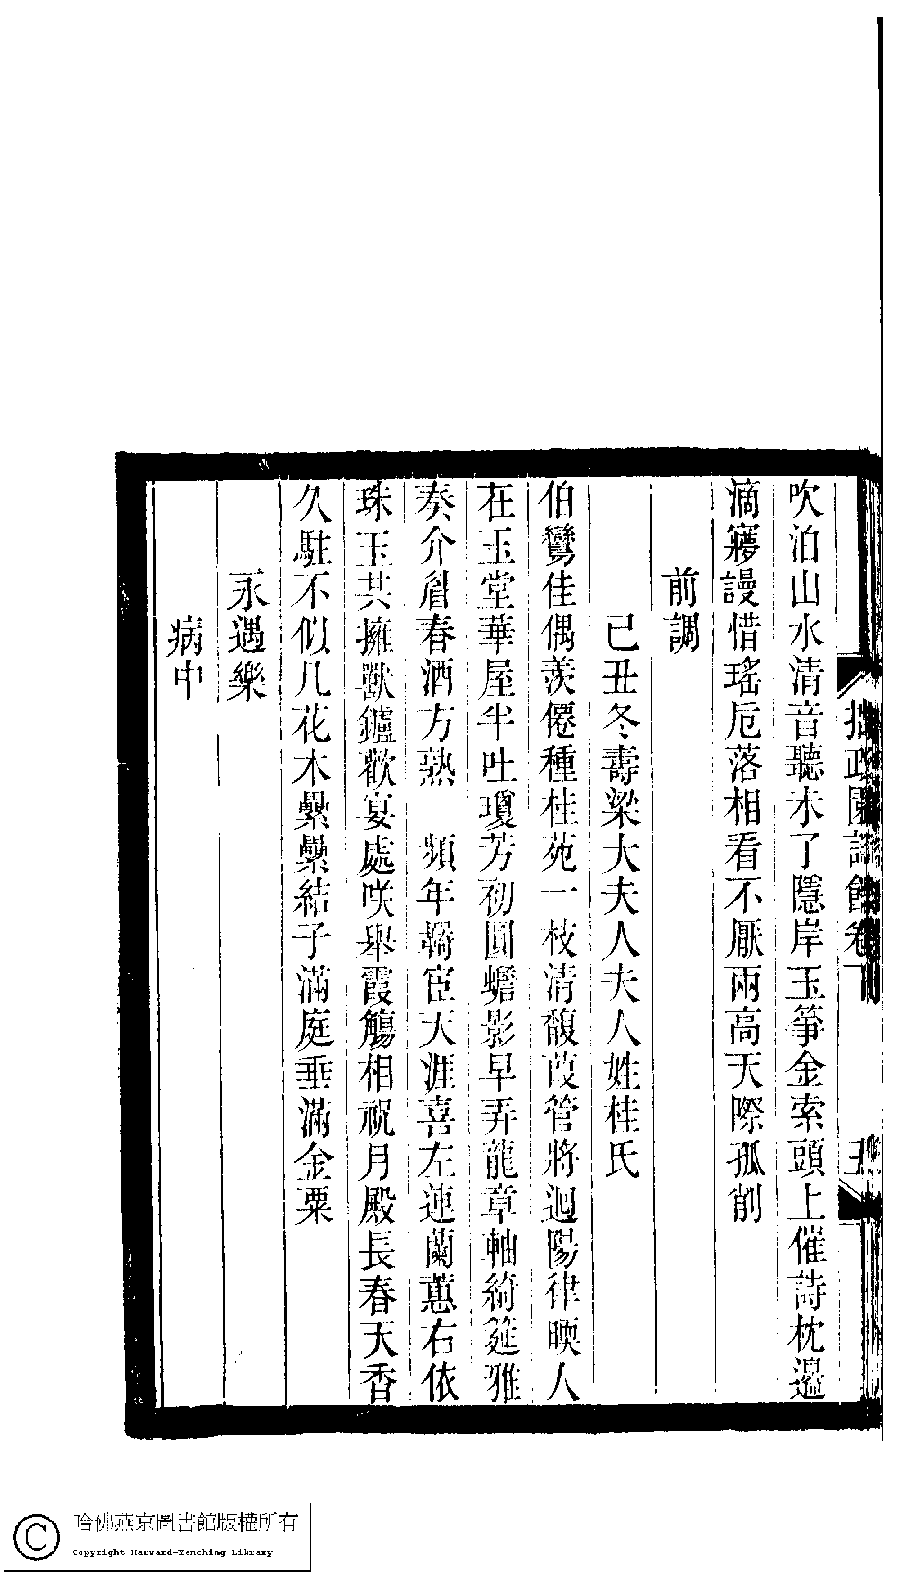 吹泊山水清音聽未了隱岸玉箏金索頭上催詩枕邊
滴寤謾惜瑤卮落相看不厭兩高天際孤削
前調
己丑冬壽梁大夫人夫人姓桂氏
伯鸞佳偶羨僊種桂苑一枝清馥葭管將迴陽律暎人
在玉堂華屋半吐瓊芳初圓蟾影早弄龍章軸綺筵雅
奏介眉春酒方熟　頻年覊宦天涯喜左連蘭蕙右依
珠玉共擁獸鑪歡宴處咲舉霞觴相祝月殿長春天香
久駐不似凡花木纍纍結子滿庭垂滿金粟
永遇樂
病中
拙政園詩餘卷
哈佛燕京圖書館版權所有
Copyright Harvard-Yenching Library